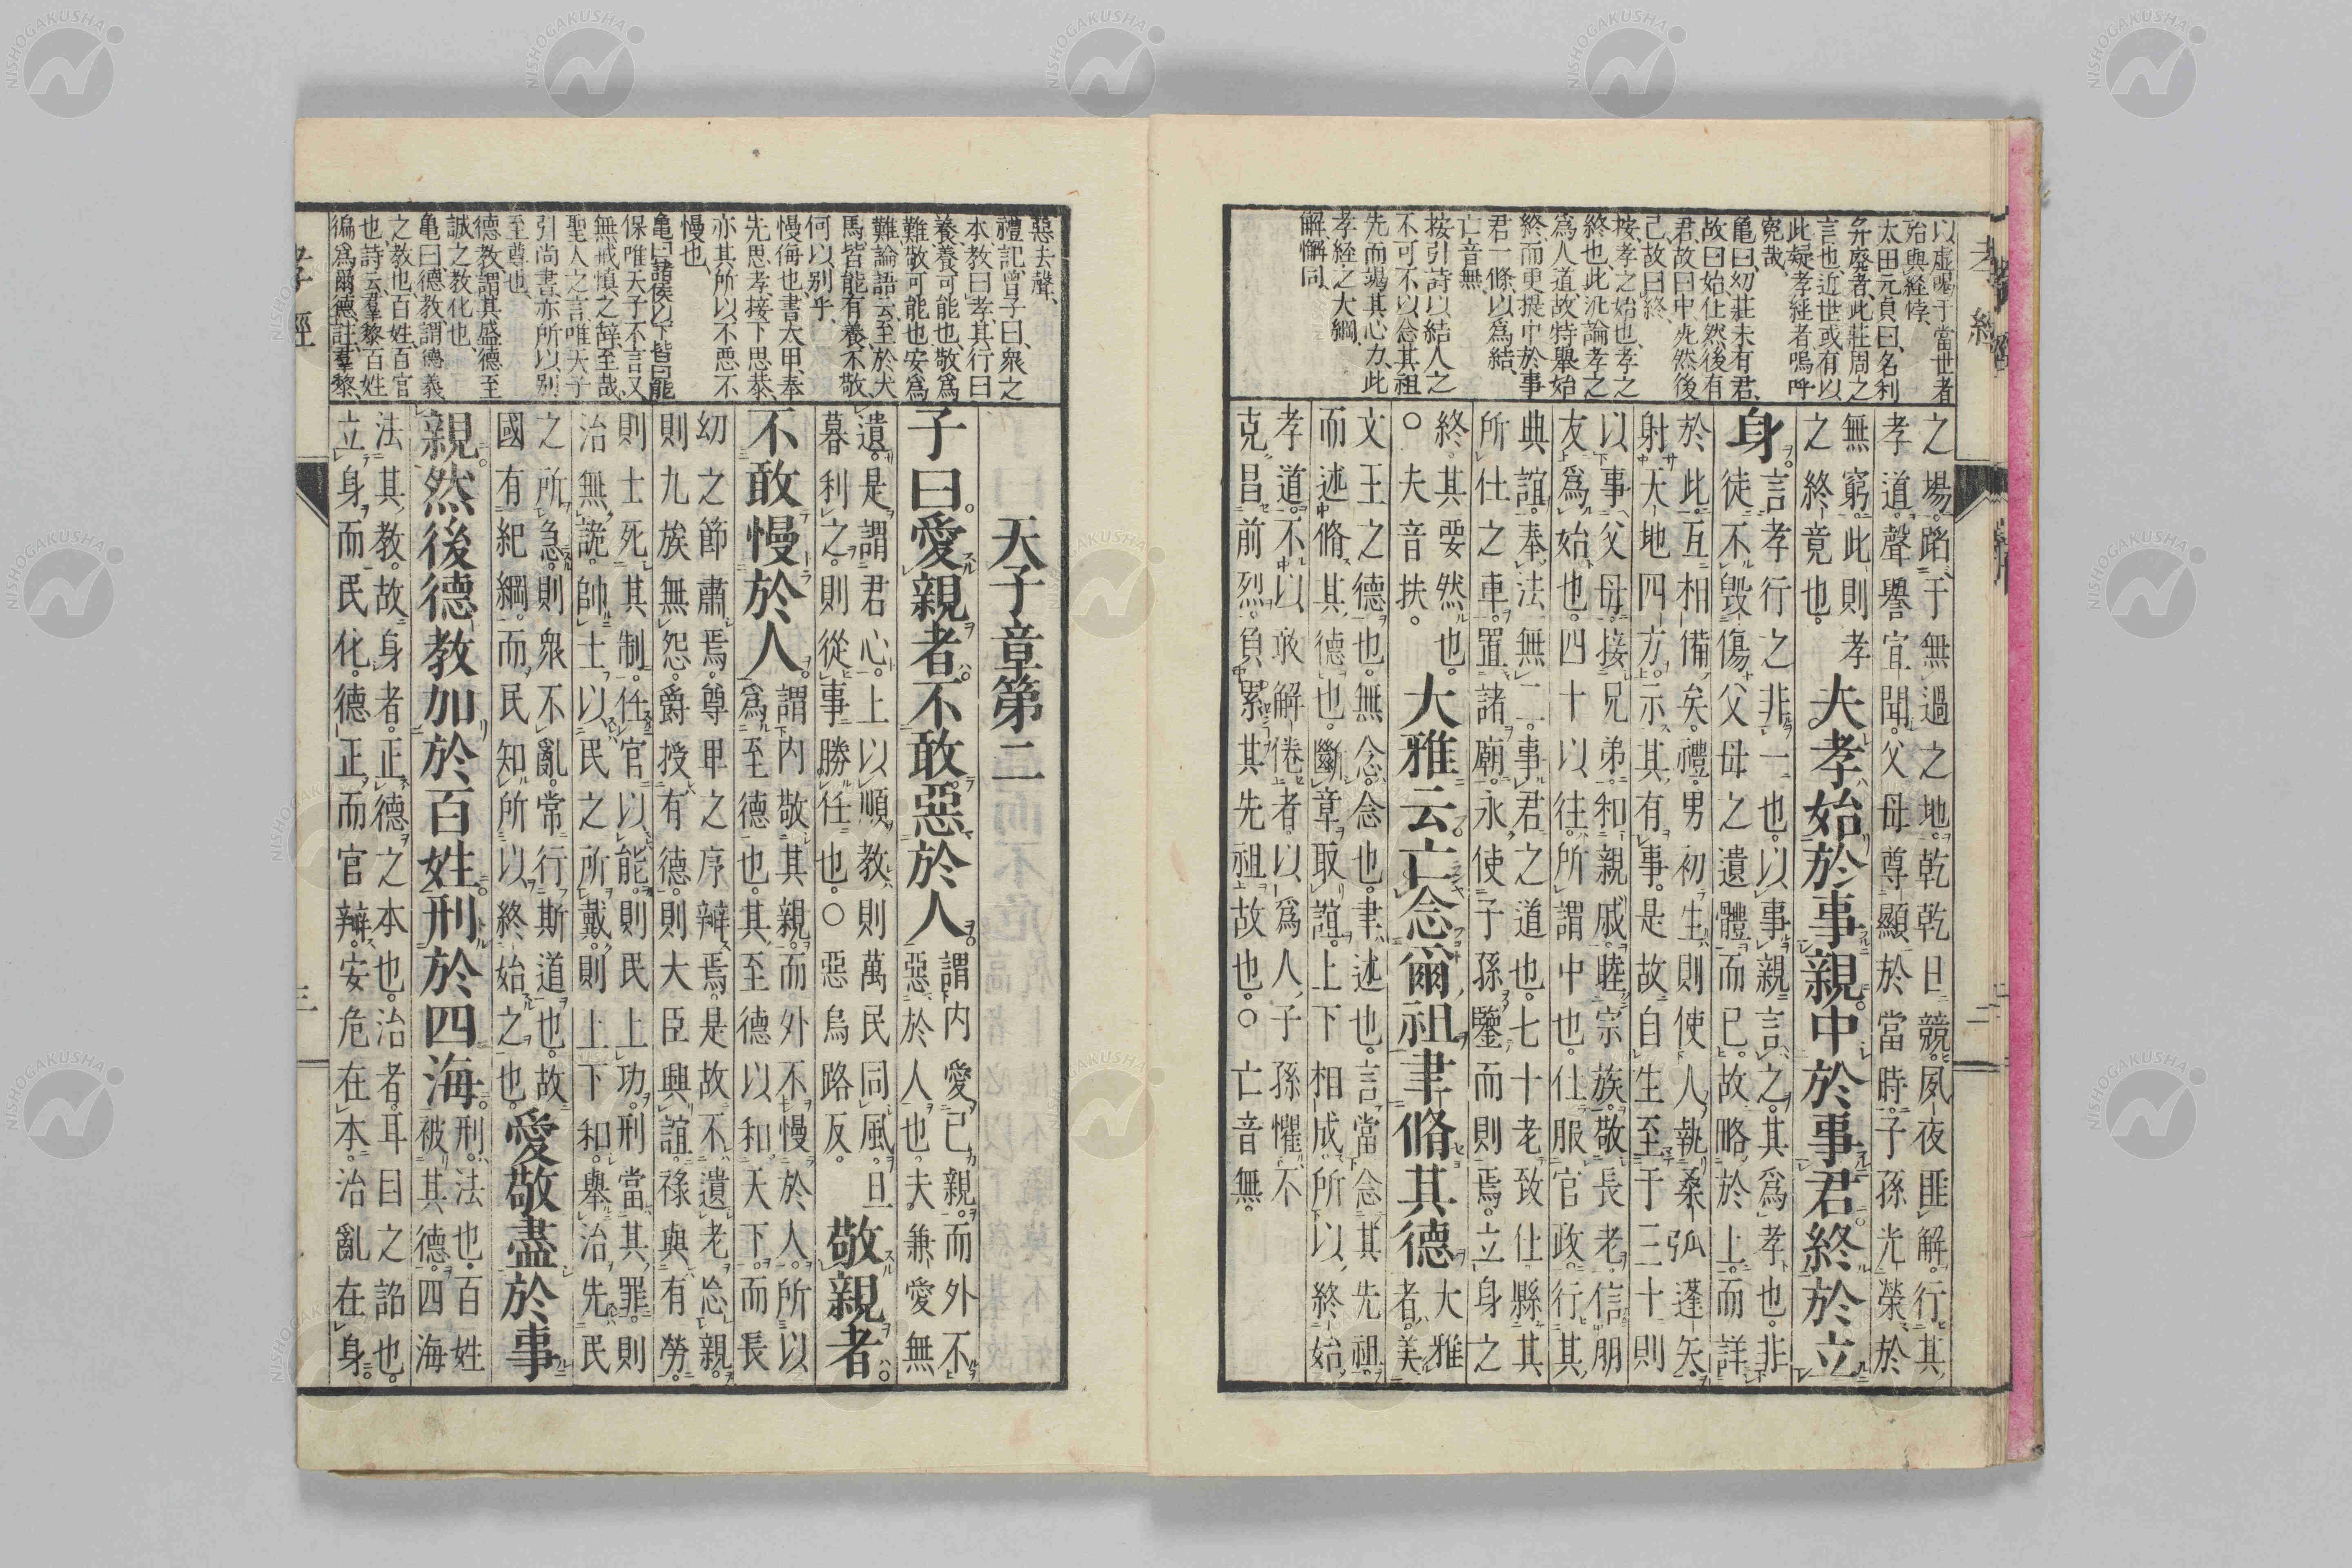 以虛喝于當世者
殆與経悖、
太田元貞曰、名利
弁廢者、此莊周之
言也、近世或有以
此疑孝経者嗚呼
寃哉、
亀曰、幼莊未有君、
故曰始、仕然後有
君、故曰中、死然後
己、故曰終、
按、孝之始也、孝之
終也、此汎論孝之
爲人道、故特擧始
終、而更提中於事
君一條、以爲結、
亡音無、
按、引詩以結人之
不可不以念其祖
先而竭其心力、此
孝経之大綱、
解、懈同、
之場。蹈于無過之地。乾乾日競。夙夜匪解。行其
孝道。聲譽宣聞。父母尊顯於當時。子孫光榮於
無窮。此則孝
之終竟也。
夫孝始於事親。中於事君。終於立
身。
言孝行之非一也。以事親言之。其爲孝也。非
徒不毀傷父母之遺體而已。故略於上。而詳
於此。互相備矣。禮。男初生。則使人執桑弧蓬矢。
射天地四方。示其有事。是故自生至于三十。則
以事父母。接兄弟。和親戚。睦宗族。敬長老。信朋
友爲始也。四十以往。所謂中也。仕服官政。行其
典誼。奉法無二。事君之道也。七十老致仕。縣其
所仕之車。置諸廟。永使子孫鑒而則焉。立身之
終。其要然也。
○夫音扶。
大雅云。亡念爾祖。聿脩其德
大雅
者。美
文王之德也。無念。念也。聿。述也。言當念其先祖。
而述脩其德也。斷章取誼。上下相成。所以終始
孝道。不以敢解倦者。以爲人子孫懼不
克昌前烈。負累其先祖故也。○亡音無。
惡去聲、
禮記、曾子曰、衆之
本、教曰孝、其行曰
養、養可能也、敬爲
難、敬可能也、安爲
難、論語云、至於犬
馬皆能有養、不敬、
何以別乎、
慢、侮也、書大甲、奉
先思孝、接下思恭、
亦其所以不惡不
慢也、
亀曰、諸侯以下皆曰能
保、唯天子不言、又
無戒慎之辞、至哉、
聖人之言、唯天子
引尚書、亦所以別
至尊也、
德教、謂其盛德至
誠之教化也、
亀曰、德教、謂德義
之教也、百姓、百官
也、詩云、羣黎百姓
徧爲爾德、註、羣黎、
天子章第二
子曰。愛親者。不敢惡於人。
謂内愛己親。而外不
惡於人也。夫兼愛無
遺。是謂君心。上以順教。則萬民同風。旦
暮利之。則從事勝任也。○惡烏路反。
敬親者
不敢慢於人。
謂内敬其親。而外不慢於人。所以
爲至德也。其至德以和天下。而長
幼之節肅焉。尊卑之序辨焉。是故不遺老忘親。
則九族無怨。爵授有德。則大臣興誼。祿與有勞。
則士死其制。任官以能。則民上功。刑當其罪。則
治無詭。帥士以民之所戴。則上下和。擧治先民
之所急。則衆不亂。常行斯道也。故
國有紀綱。而民知所以終始之也。
愛敬盡於事
親。然後德教加於百姓。刑於四海。
刑。法也。百姓
被其德。四海
法其教。故身者。正德之本也。治者。耳目之詔也。
立身而民化。德正而官辨。安危在本。治亂在身。
孝經
三
NISHOGAKUSHA